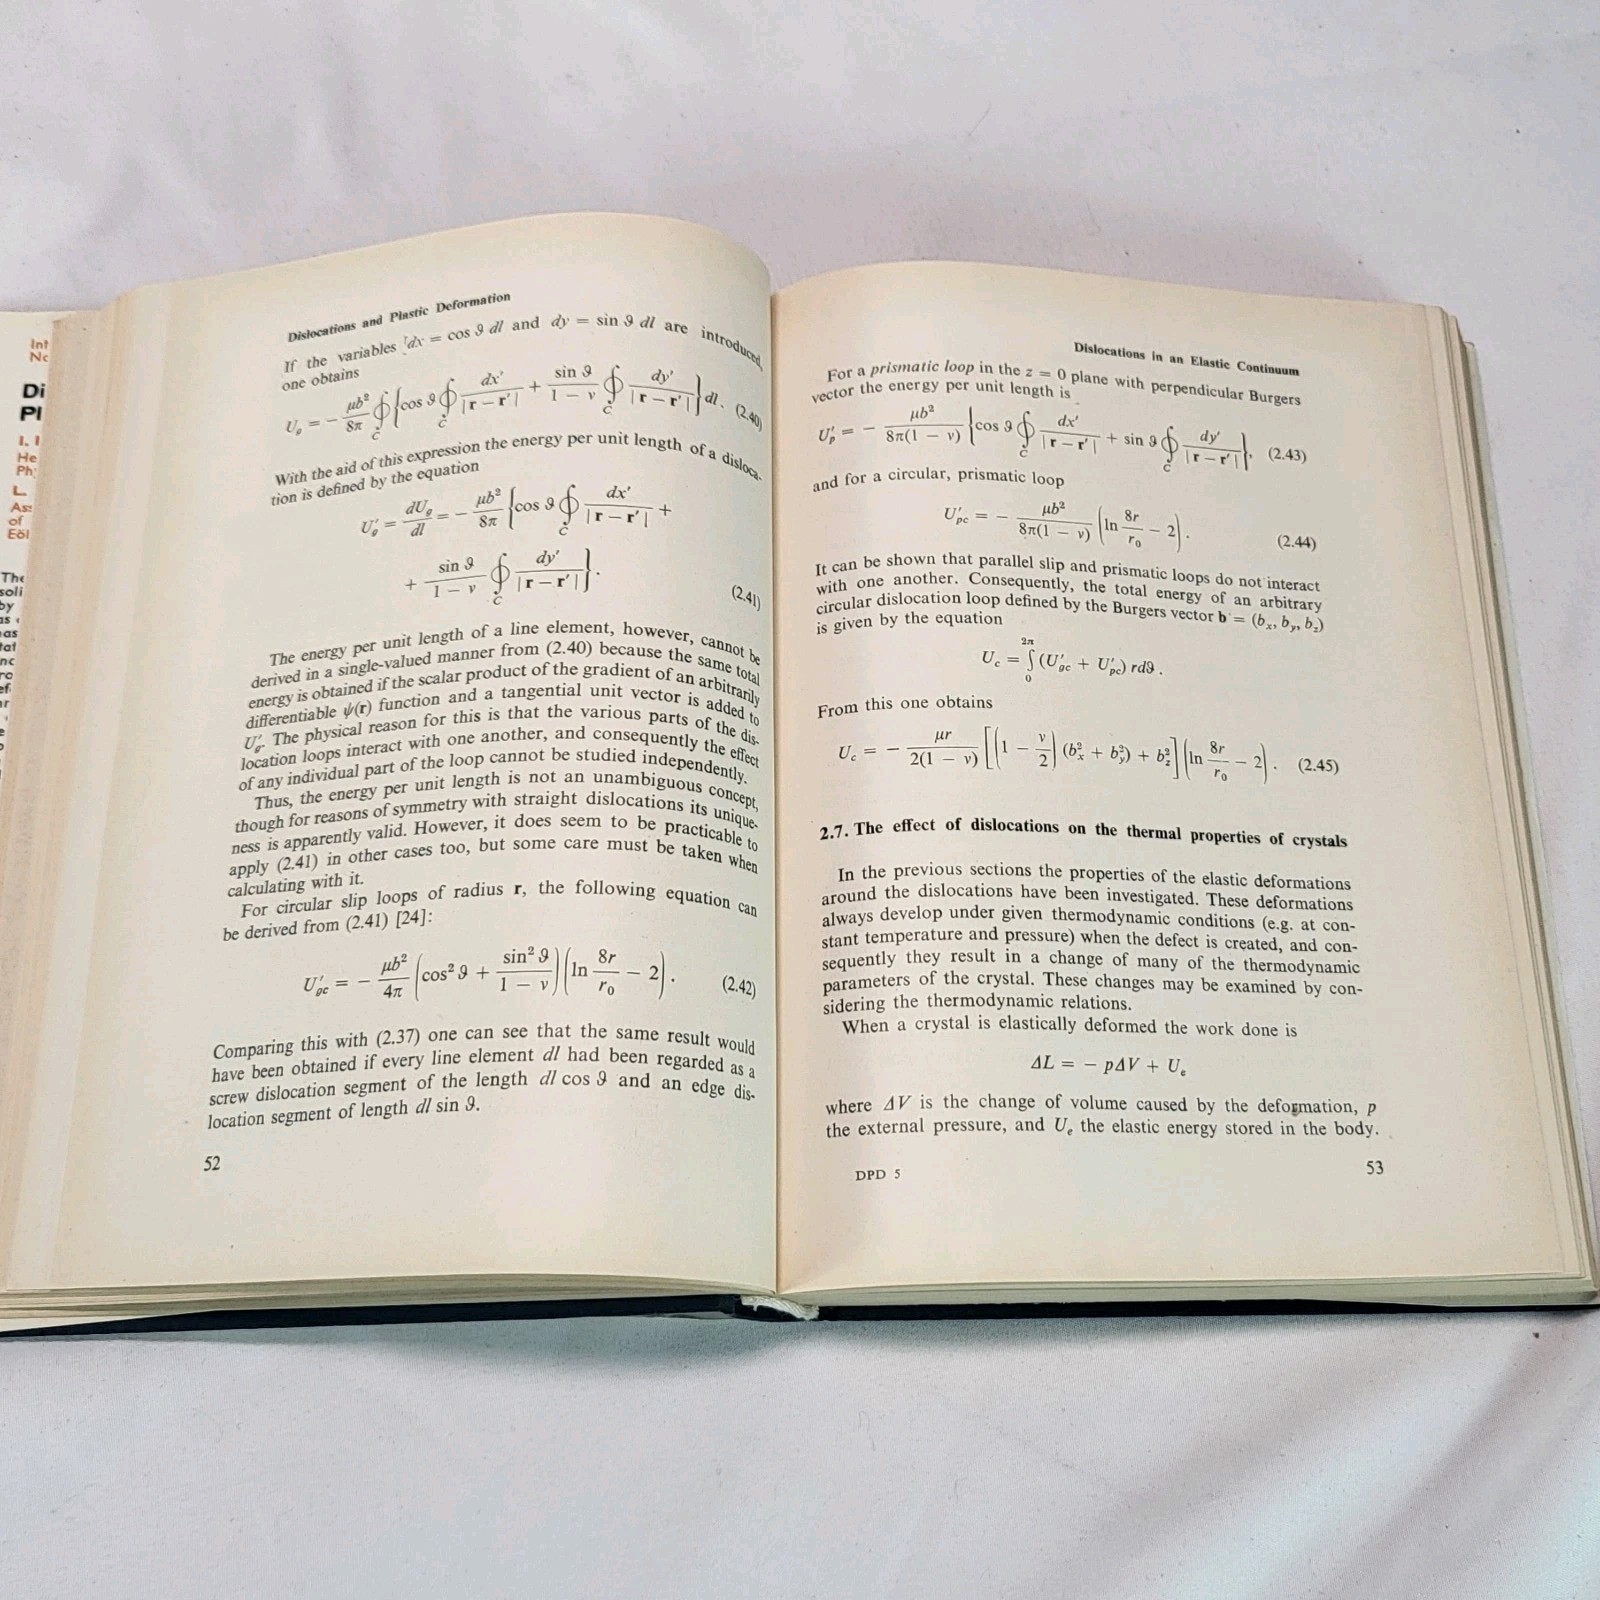 Int
Di
Pl
I.
He
Ph
L.
As
of
Eöl
The
soli
by
as
Dislocations and Plastic Deformation
If the variables dx = cos ϑ dl and dy = sin ϑ dl are introduced,
one obtains
U_g = − μb²/8π ∮_C {cos ϑ ∮_C dx′/|r − r′| + sin ϑ/(1 − ν) ∮_C dy′/|r − r′|} dl. (2.40)
With the aid of this expression the energy per unit length of a disloca-
tion is defined by the equation
U′_g = dU_g/dl = − μb²/8π {cos ϑ ∮_C dx′/|r − r′| +
+ sin ϑ/(1 − ν) ∮_C dy′/|r − r′|}. (2.41)
The energy per unit length of a line element, however, cannot be
derived in a single-valued manner from (2.40) because the same total
energy is obtained if the scalar product of the gradient of an arbitrarily
differentiable ψ(r) function and a tangential unit vector is added to
U′_g. The physical reason for this is that the various parts of the dis-
location loops interact with one another, and consequently the effect
of any individual part of the loop cannot be studied independently.
Thus, the energy per unit length is not an unambiguous concept,
though for reasons of symmetry with straight dislocations its unique-
ness is apparently valid. However, it does seem to be practicable to
apply (2.41) in other cases too, but some care must be taken when
calculating with it.
For circular slip loops of radius r, the following equation can
be derived from (2.41) [24]:
U′_gc = − μb²/4π (cos² ϑ + sin² ϑ/(1 − ν)) (ln 8r/r₀ − 2). (2.42)
Comparing this with (2.37) one can see that the same result would
have been obtained if every line element dl had been regarded as a
screw dislocation segment of the length dl cos ϑ and an edge dis-
location segment of length dl sin ϑ.
52
Dislocations in an Elastic Continuum
For a prismatic loop in the z = 0 plane with perpendicular Burgers
vector the energy per unit length is
U′_p = − μb²/8π(1 − ν) {cos ϑ ∮_C dx′/|r − r′| + sin ϑ ∮_C dy′/|r − r′|}, (2.43)
and for a circular, prismatic loop
U′_pc = − μb²/8π(1 − ν) (ln 8r/r₀ − 2). (2.44)
It can be shown that parallel slip and prismatic loops do not interact
with one another. Consequently, the total energy of an arbitrary
circular dislocation loop defined by the Burgers vector b = (b_x, b_y, b_z)
is given by the equation
U_c = ∫₀^2π (U′_gc + U′_pc) rdϑ.
From this one obtains
U_c = − μr/2(1 − ν) [(1 − ν/2) (b²_x + b²_y) + b²_z] (ln 8r/r₀ − 2). (2.45)
2.7. The effect of dislocations on the thermal properties of crystals
In the previous sections the properties of the elastic deformations
around the dislocations have been investigated. These deformations
always develop under given thermodynamic conditions (e.g. at con-
stant temperature and pressure) when the defect is created, and con-
sequently they result in a change of many of the thermodynamic
parameters of the crystal. These changes may be examined by con-
sidering the thermodynamic relations.
When a crystal is elastically deformed the work done is
ΔL = − pΔV + U_e
where ΔV is the change of volume caused by the deformation, p
the external pressure, and U_e the elastic energy stored in the body.
DPD 5
53